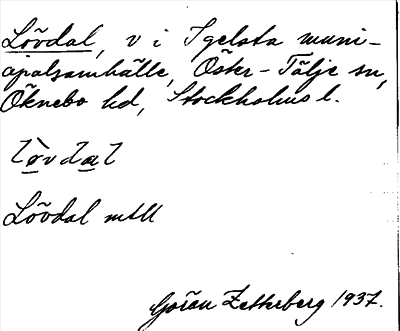 Lövdal, v i Igelsta muni-
cipalsamhälle, Öster-Tälje sn,
Öknebo hd, Stockholms l.
Lövdal mtll
Göran Zetterberg 1937.